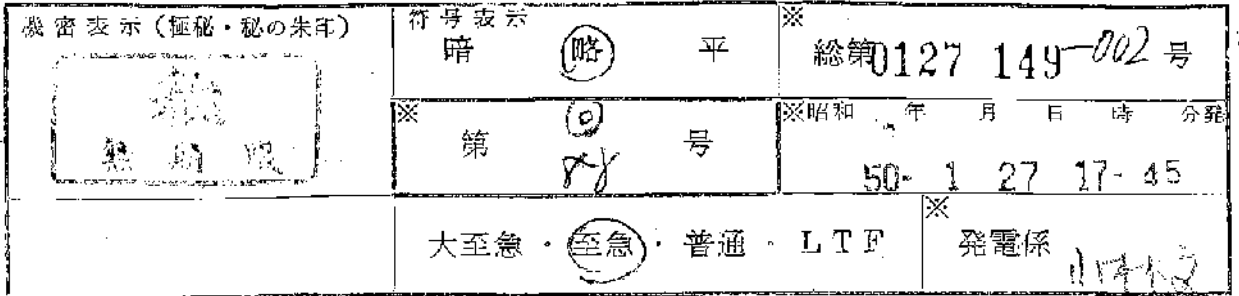 機密表示(極秘・秘の朱印)
無期限
符号表示
暗 略 平
※
総第0127 149-002号
※
第 号
※昭和 年 月 日 時 分発
50- 1 27 17-45
大至急・至急・普通・LTF
※
発電係